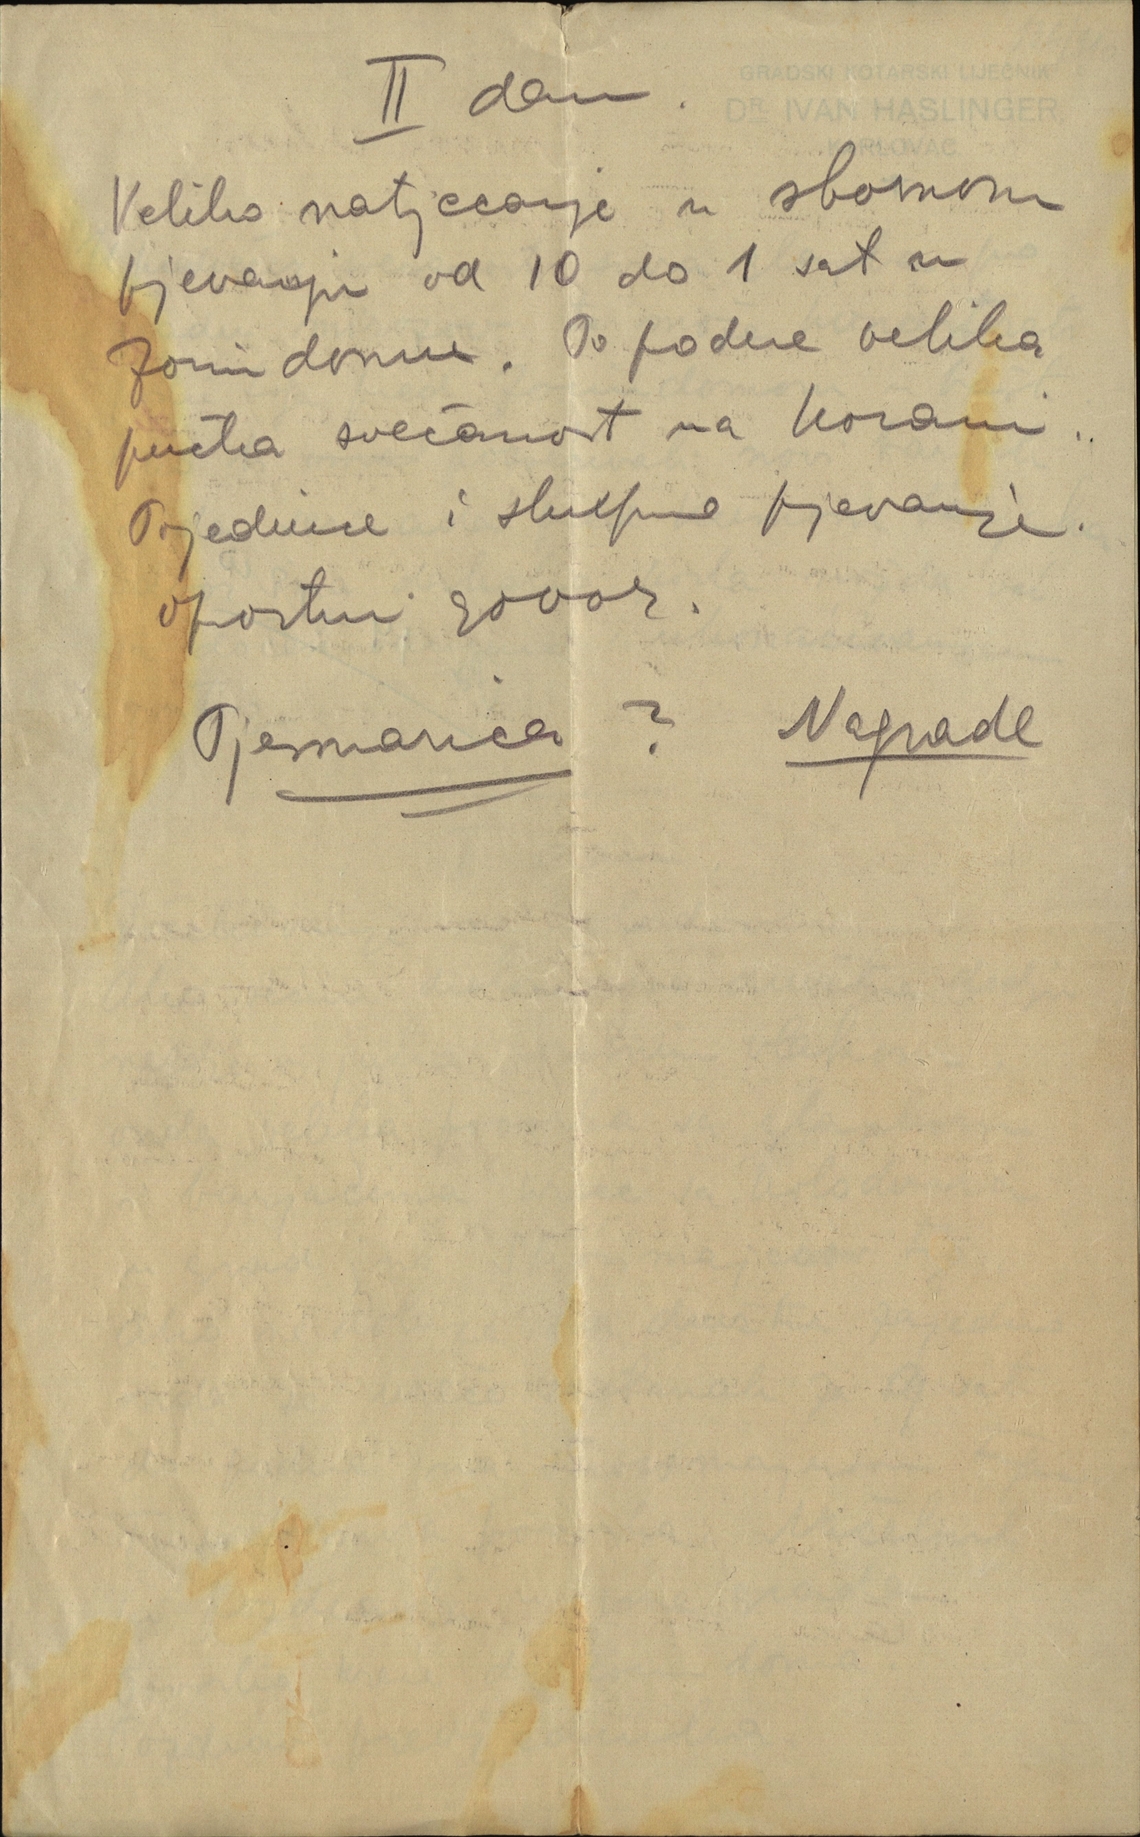 GRADSKI KOTARSKI LIJEČNIK
DR. IVAN HASLINGER
KARLOVAC
II dan.
Veliko natjecanje u sbornom
pjevanju od 10 do 1 sat u
Zorin domu. Po podne velika
pučka svečanost na Korani.
Pojedince i skupno pjevanje.
oprostni govor.
Pjesmarica ? Nagrade